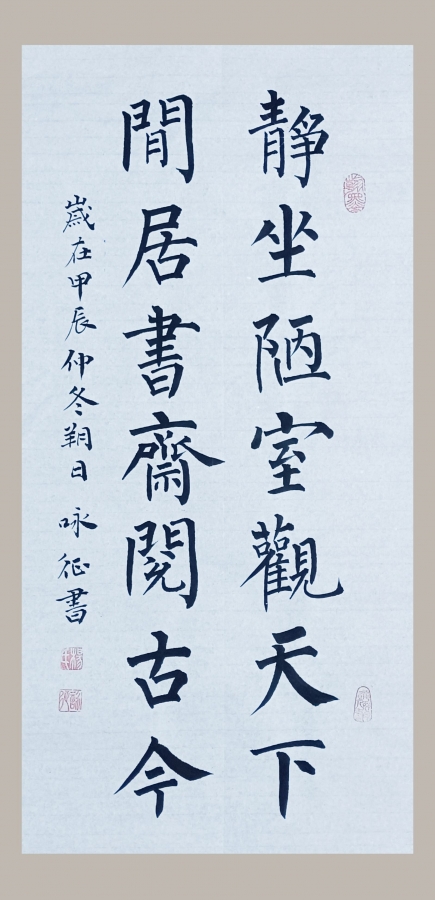 靜坐陋室觀天下
閒居書齋閱古今
歲在甲辰仲冬翔日 咏征書